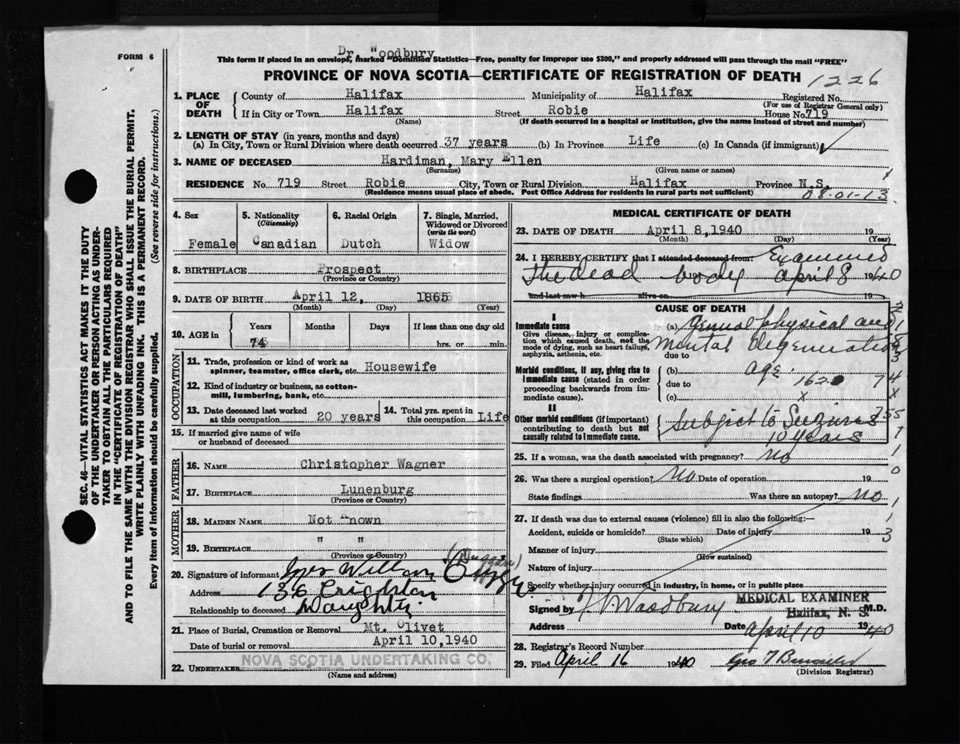 FORM 6
Dr. Woodbury
This form if placed in an envelope, marked "Dominion Statistics—Free, penalty for improper use $300," and properly addressed will pass through the mail "FREE"
PROVINCE OF NOVA SCOTIA—CERTIFICATE OF REGISTRATION OF DEATH
1226
1. PLACE OF DEATH
County of Halifax Municipality of Halifax Registered No.
(For use of Registrar General only)
If in City or Town Halifax Street Robie House No. 719
(Name) (If death occurred in a hospital or institution, give the name instead of street and number)
2. LENGTH OF STAY (in years, months and days)
(a) In City, Town or Rural Division where death occurred 37 years (b) In Province Life (c) In Canada (if immigrant)
3. NAME OF DECEASED Hardiman, Mary Ellen
(Surname) (Given name or names)
RESIDENCE No. 719 Street Robie City, Town or Rural Division Halifax Province N.S.
(Residence means usual place of abode. Post Office Address for residents in rural parts not sufficient)
08-01-13
4. Sex Female
5. Nationality (Citizenship) Canadian
6. Racial Origin Dutch
7. Single, Married, Widowed or Divorced (write the word) Widow
8. BIRTHPLACE Prospect
(Province or Country)
9. DATE OF BIRTH April 12, 1865
(Month) (Day) (Year)
10. AGE in Years Months Days If less than one day old
74 hrs. or min.
OCCUPATION
11. Trade, profession or kind of work as spinner, teamster, office clerk, etc. Housewife
12. Kind of industry or business, as cotton-mill, lumbering, bank, etc.
13. Date deceased last worked at this occupation 20 years
14. Total yrs. spent in this occupation Life
15. If married give name of wife or husband of deceased
FATHER
16. NAME Christopher Wagner
17. BIRTHPLACE Lunenburg
(Province or Country)
MOTHER
18. MAIDEN NAME Not Known
19. BIRTHPLACE " "
(Province or Country)
20. Signature of informant Mrs William
Address 136 Creighton
Relationship to deceased Daughter
21. Place of Burial, Cremation or Removal Mt. Olivet
Date of burial or removal April 10, 1940
22. UNDERTAKER NOVA SCOTIA UNDERTAKING CO.
(Name and address)
MEDICAL CERTIFICATE OF DEATH
23. DATE OF DEATH April 8, 1940 19
(Month) (Day) (Year)
24. I HEREBY CERTIFY that I attended deceased from: Examined
the dead body april 8 1940
and last saw h alive on
CAUSE OF DEATH
I
Immediate cause
Give disease, injury or complication which caused death, not the mode of dying, such as heart failure, asphyxia, asthenia, etc.
(a) Annual physical and
mental degeneration
due to
Morbid conditions, if any, giving rise to immediate cause (stated in order proceeding backwards from immediate cause).
(b) age.
due to 162 74
(c)
II
Other morbid conditions (if important) contributing to death but not causally related to immediate cause.
Subject to Seizures
10 years
25. If a woman, was the death associated with pregnancy? No
26. Was there a surgical operation? No Date of operation 19
State findings Was there an autopsy? No
27. If death was due to external causes (violence) fill in also the following:—
Accident, suicide or homicide? Date of injury 19
(State which)
Manner of injury
(How sustained)
Nature of injury
Specify whether injury occurred in industry, in home, or in public place
Signed by Woodbury MEDICAL EXAMINER M.D.
Halifax, N. S.
Address Date April 10 1940
28. Registrar's Record Number
29. Filed April 16 1940
(Division Registrar)
SEC. 46—VITAL STATISTICS ACT MAKES IT THE DUTY
OF THE UNDERTAKER OR PERSON ACTING AS UNDER-
TAKER TO OBTAIN ALL THE PARTICULARS REQUIRED
IN THE "CERTIFICATE OF REGISTRATION OF DEATH"
AND TO FILE THE SAME WITH THE DIVISION REGISTRAR WHO SHALL ISSUE THE BURIAL PERMIT.
WRITE PLAINLY WITH UNFADING INK. THIS IS A PERMANENT RECORD.
Every item of information should be carefully supplied. (See reverse side for instructions.)